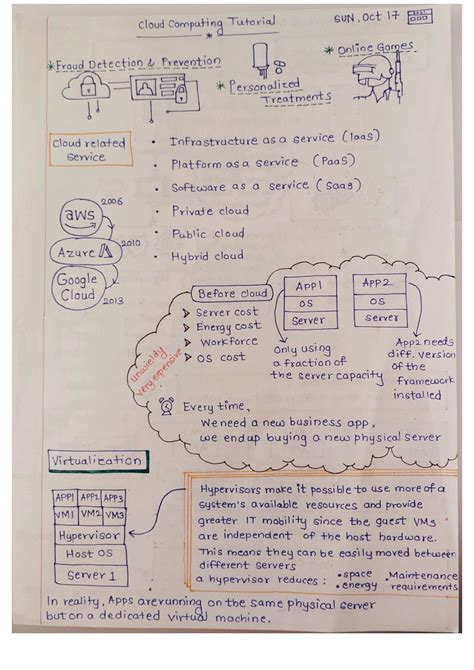 Cloud Computing Tutorial
SUN, Oct 17
*Fraud Detection & Prevention
* Personalized
Treatments
* Online Games
Cloud related
Service
• Infrastructure as a service (Iaas)
• Platform as a service (PaaS)
• Software as a service (Saas)
• Private cloud
• Public cloud
• Hybrid cloud
aws 2006
Azure 2010
Google
Cloud 2013
Before cloud
➤ Server cost
➤ Energy cost
➤ Workforce
➤ OS cost
unwieldy
very expensive
App1
OS
Server
App2
OS
Server
Only using
a fraction of
the server capacity
App2 needs
diff. version
of the
framework
installed
Every time,
We need a new business app,
we end up buying a new physical server
Virtualization
APP1 APP2 APP3
VM1 VM2 VM3
Hypervisor
Host OS
Server 1
Hypervisors make it possible to use more of a
system's available resources and provide
greater IT mobility since the guest VMs
are independent of the host hardware.
This means they can be easily moved between
different servers
a hypervisor reduces : •space •Maintenance
•energy requirements
In reality, Apps are running on the same physical server
but on a dedicated virtual machine.